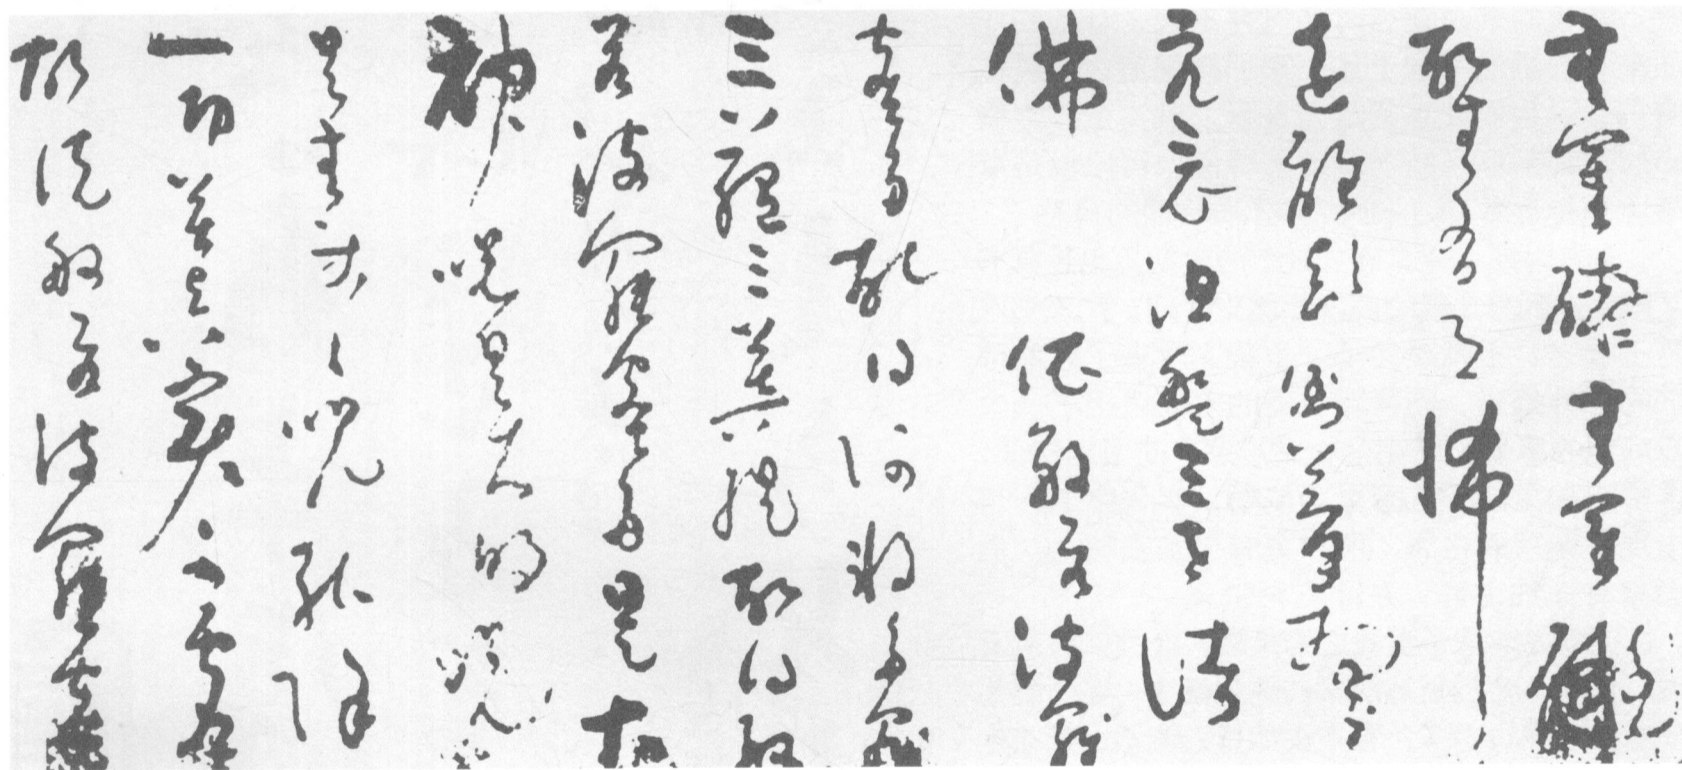 無罣礙無罣礙
故無有恐怖
遠離顛倒夢想
究竟涅槃三世諸
佛依般若波羅
蜜多故得阿耨多羅
三藐三菩提故知般
若波羅蜜多是大
神咒是大明咒
是無等等咒能除
一切苦真實不虛
故說般若波羅蜜多